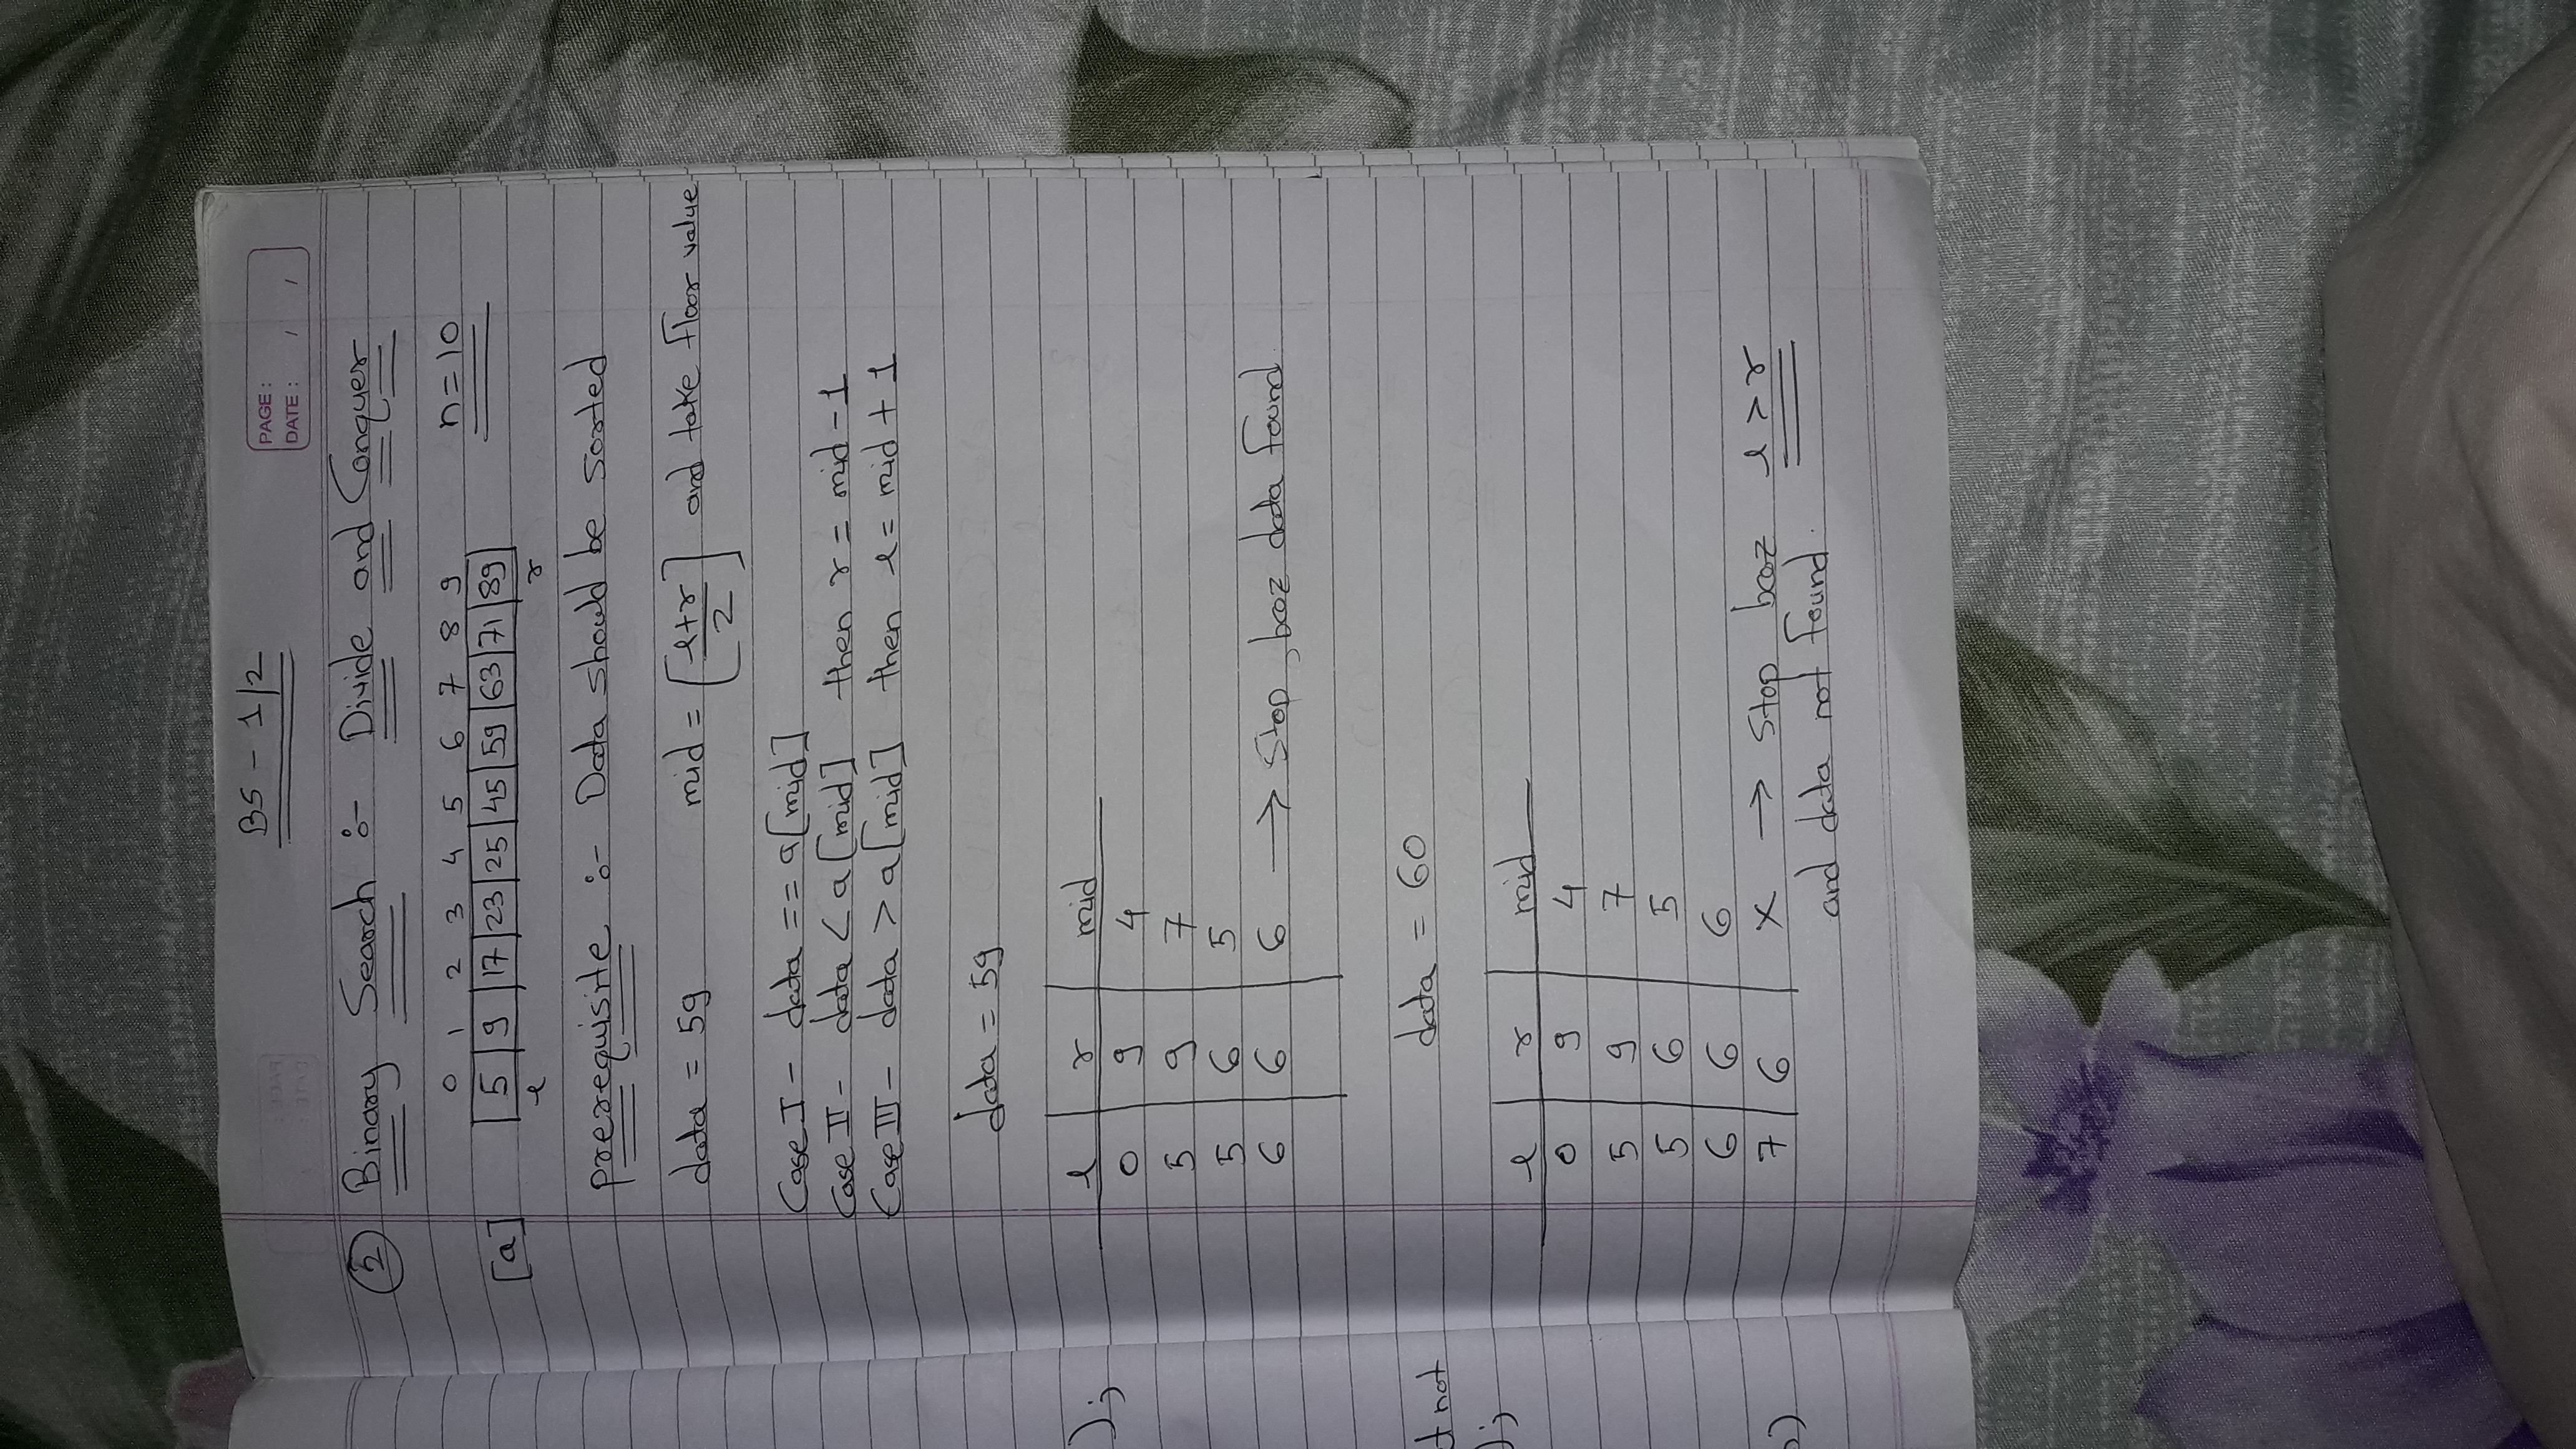 BS - 1/2
PAGE :
DATE : / /
② Binary Search :- Divide and Conquer
0 1 2 3 4 5 6 7 8 9 n=10
[a] 5 9 17 23 25 45 59 63 71 89
l r
prerequisite :- Data should be sorted
data = 59 mid = [l+r/2] and take floor value
Case I - data == a[mid]
Case II - data < a[mid] then r = mid - 1
Case III - data > a[mid] then l = mid + 1
data = 59
l r mid
);
0 9 4
5 9 7
5 6 5
6 6 6 → Stop, bcoz data found.
data = 60
not
);
l r mid
0 9 4
5 9 7
5 6 5
6 6 6
7 6 x → Stop bcoz l > r
)
and data not found.